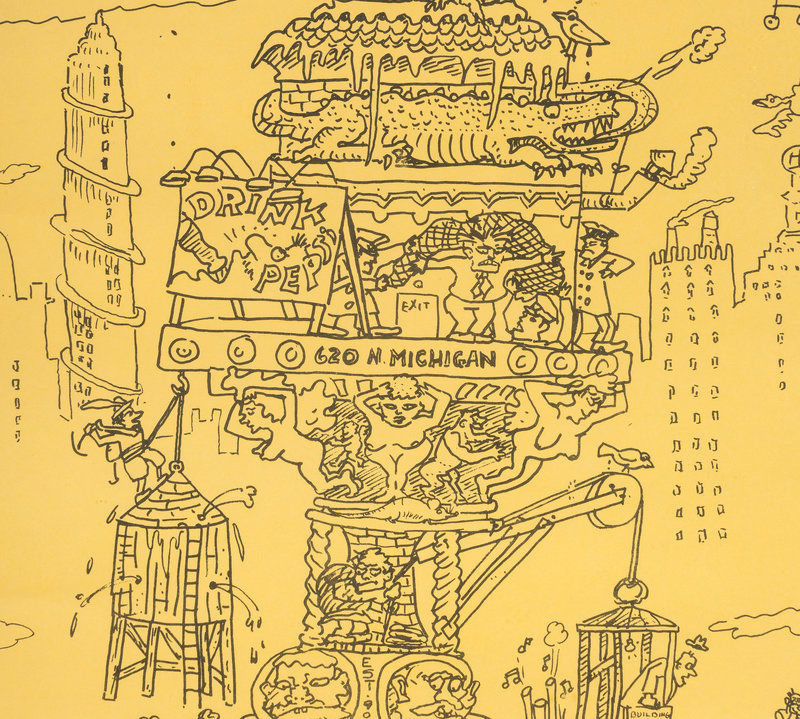 DRINK
PEP
EXIT
620 N. MICHIGAN
EST.
BUILDING